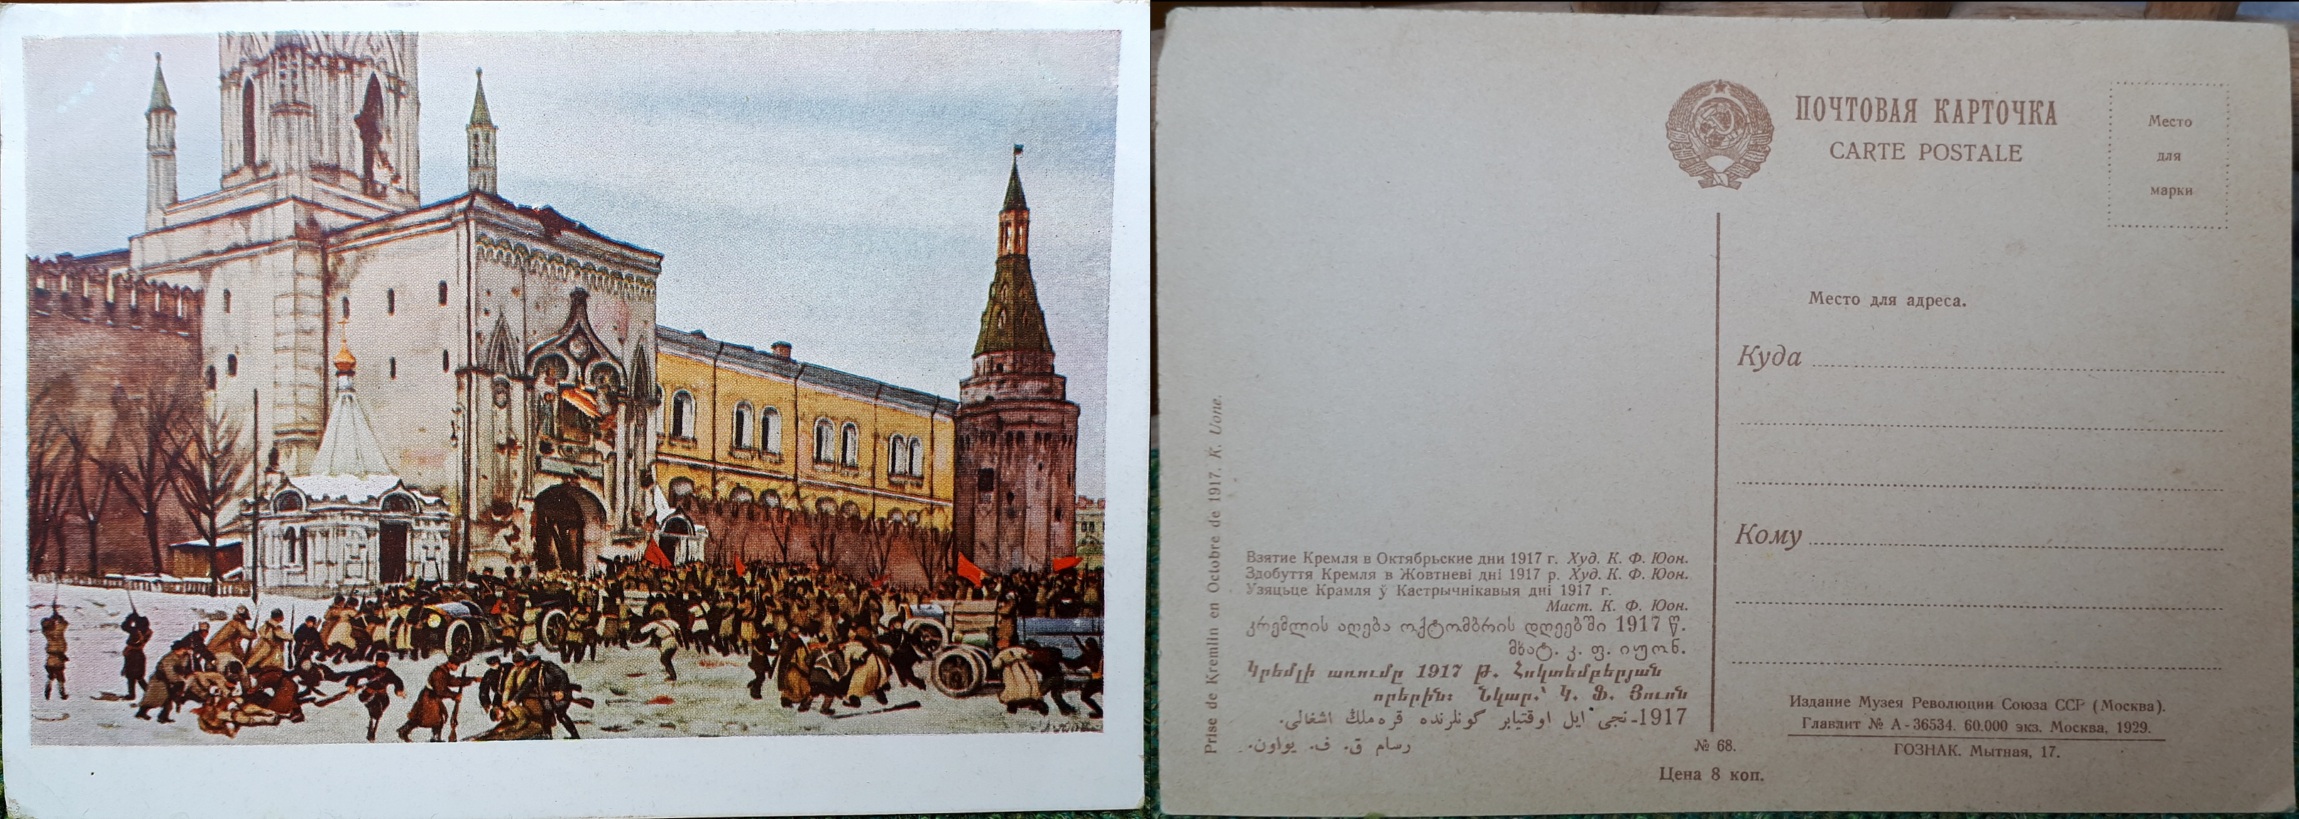 ПОЧТОВАЯ КАРТОЧКА
CARTE POSTALE
Место
для
марки
Место для адреса.
Куда
Кому
Prise de Kremlin en Octobre de 1917. K. Uone.
Взятие Кремля в Октябрьские дни 1917 г. Худ. К. Ф. Юон.
Здобуття Кремля в Жовтневі дні 1917 р. Худ. К. Ф. Юон.
Узяцьце Крамля ў Кастрычнікавыя дні 1917 г.
Маст. К. Ф. Юон.
კრემლის აღება ოქტომბრის დღეებში 1917 წ.
მხატ. კ. ფ. იუონ.
Կրեմլի առումը 1917 թ. Հոկտեմբերյան
որերին: Նկար.՝ Կ. Ֆ. Յուոն
1917-نجی ایل اوقتیابر گونلرنده قره‌ملڭ اشغالی.
رسام ق. ف. یواون.
№ 68.
Цена 8 коп.
Издание Музея Революции Союза ССР (Москва).
Главлит № А-36534. 60.000 экз. Москва, 1929.
ГОЗНАК. Мытная, 17.